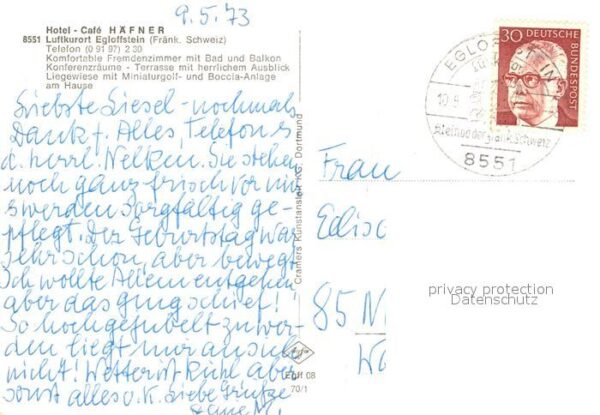 9.5.73
Hotel - Café HÄFNER
8551 Luftkurort Egloffstein (Fränk. Schweiz)
Telefon (0 91 97) 2 30
Komfortable Fremdenzimmer mit Bad und Balkon
Konferenzräume - Terrasse mit herrlichem Ausblick
Liegewiese mit Miniaturgolf- und Boccia-Anlage
am Hause
Liebste Liesel - nochmals
Dank f. Alles, Telefon u
d. herrl. Nelken. Sie stehen
noch ganz frisch vor mir
werden sorgfältig ge-
pflegt. Der Geburtstag war
sehr schön, aber bewegt
Ich wollte Allem entgehen
aber das ging schief!
So hochgejubelt zu wer-
den liegt mir an sich
nicht! Wetter ist kühl aber
sonst alles o.K. Liebe Grüße
Cramers Kunstanstalt KG, Dortmund
Egff 08
70/1
30 DEUTSCHE
BUNDESPOST
EGLOFFSTEIN
10.5
Perle der fränk. Schweiz
8551
Frau
85 N
privacy protection
Datenschutz